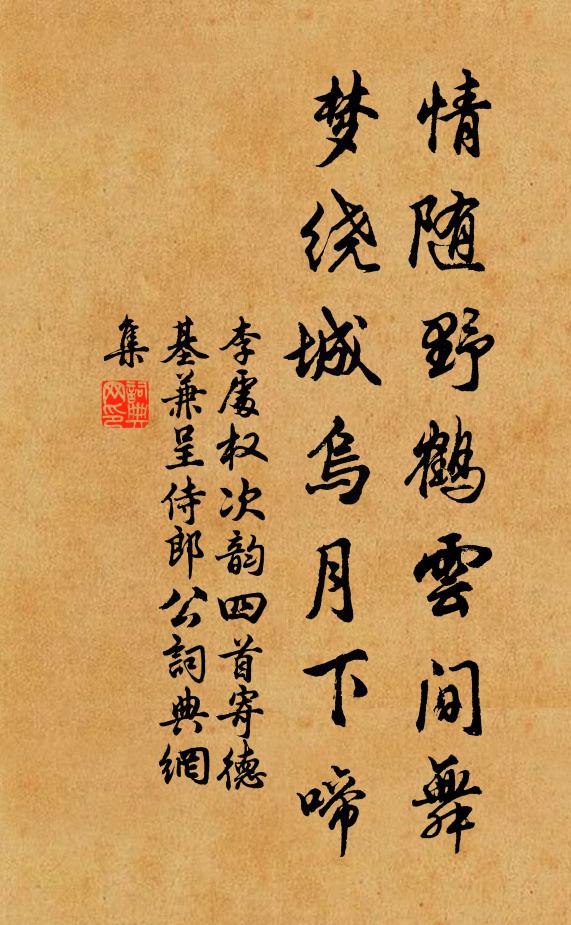 情随野鹤雲间舞
梦绕城乌月下啼
李處权次韵四首寄德
基兼呈侍郎公詞典網
集
詞典
网印